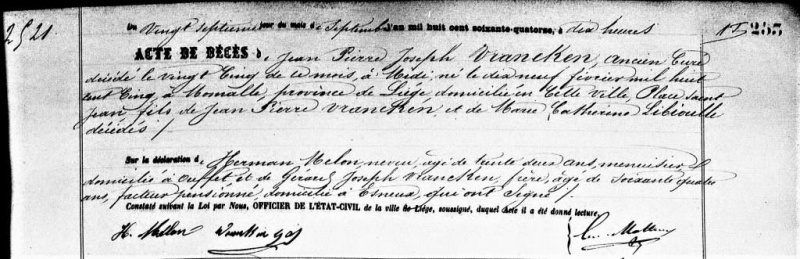 2521.
Du vingt septième jour du mois de Septembre l'an mil huit cent soixante-quatorze, à dix heures
N° 255
ACTE DE DÉCÈS de Jean Pierre Joseph Vrancken, ancien Curé
décédé le vingt Cinq de ce mois, à Midi, né le dix neuf février mil huit
cent Cinq à Momalle, province de Liége domicilié en cette ville, Place saint
jean fils de Jean Pierre Vrancken, et de Marie Catherine Libioulle
décédés /
Sur la déclaration de Herman Melon, neveu, agé de trente deux ans, menuisier
domicilié à Ouffet et de Gérard Joseph Vrancken, frère, âgé de soixante quatre
ans, facteur pensionné, domicilié à Esneux, qui ont signé /
Constaté suivant la Loi par Nous, OFFICIER DE L'ÉTAT-CIVIL de la ville de Liége, soussigné, duquel acte il a été donné lecture.
H. Mélon